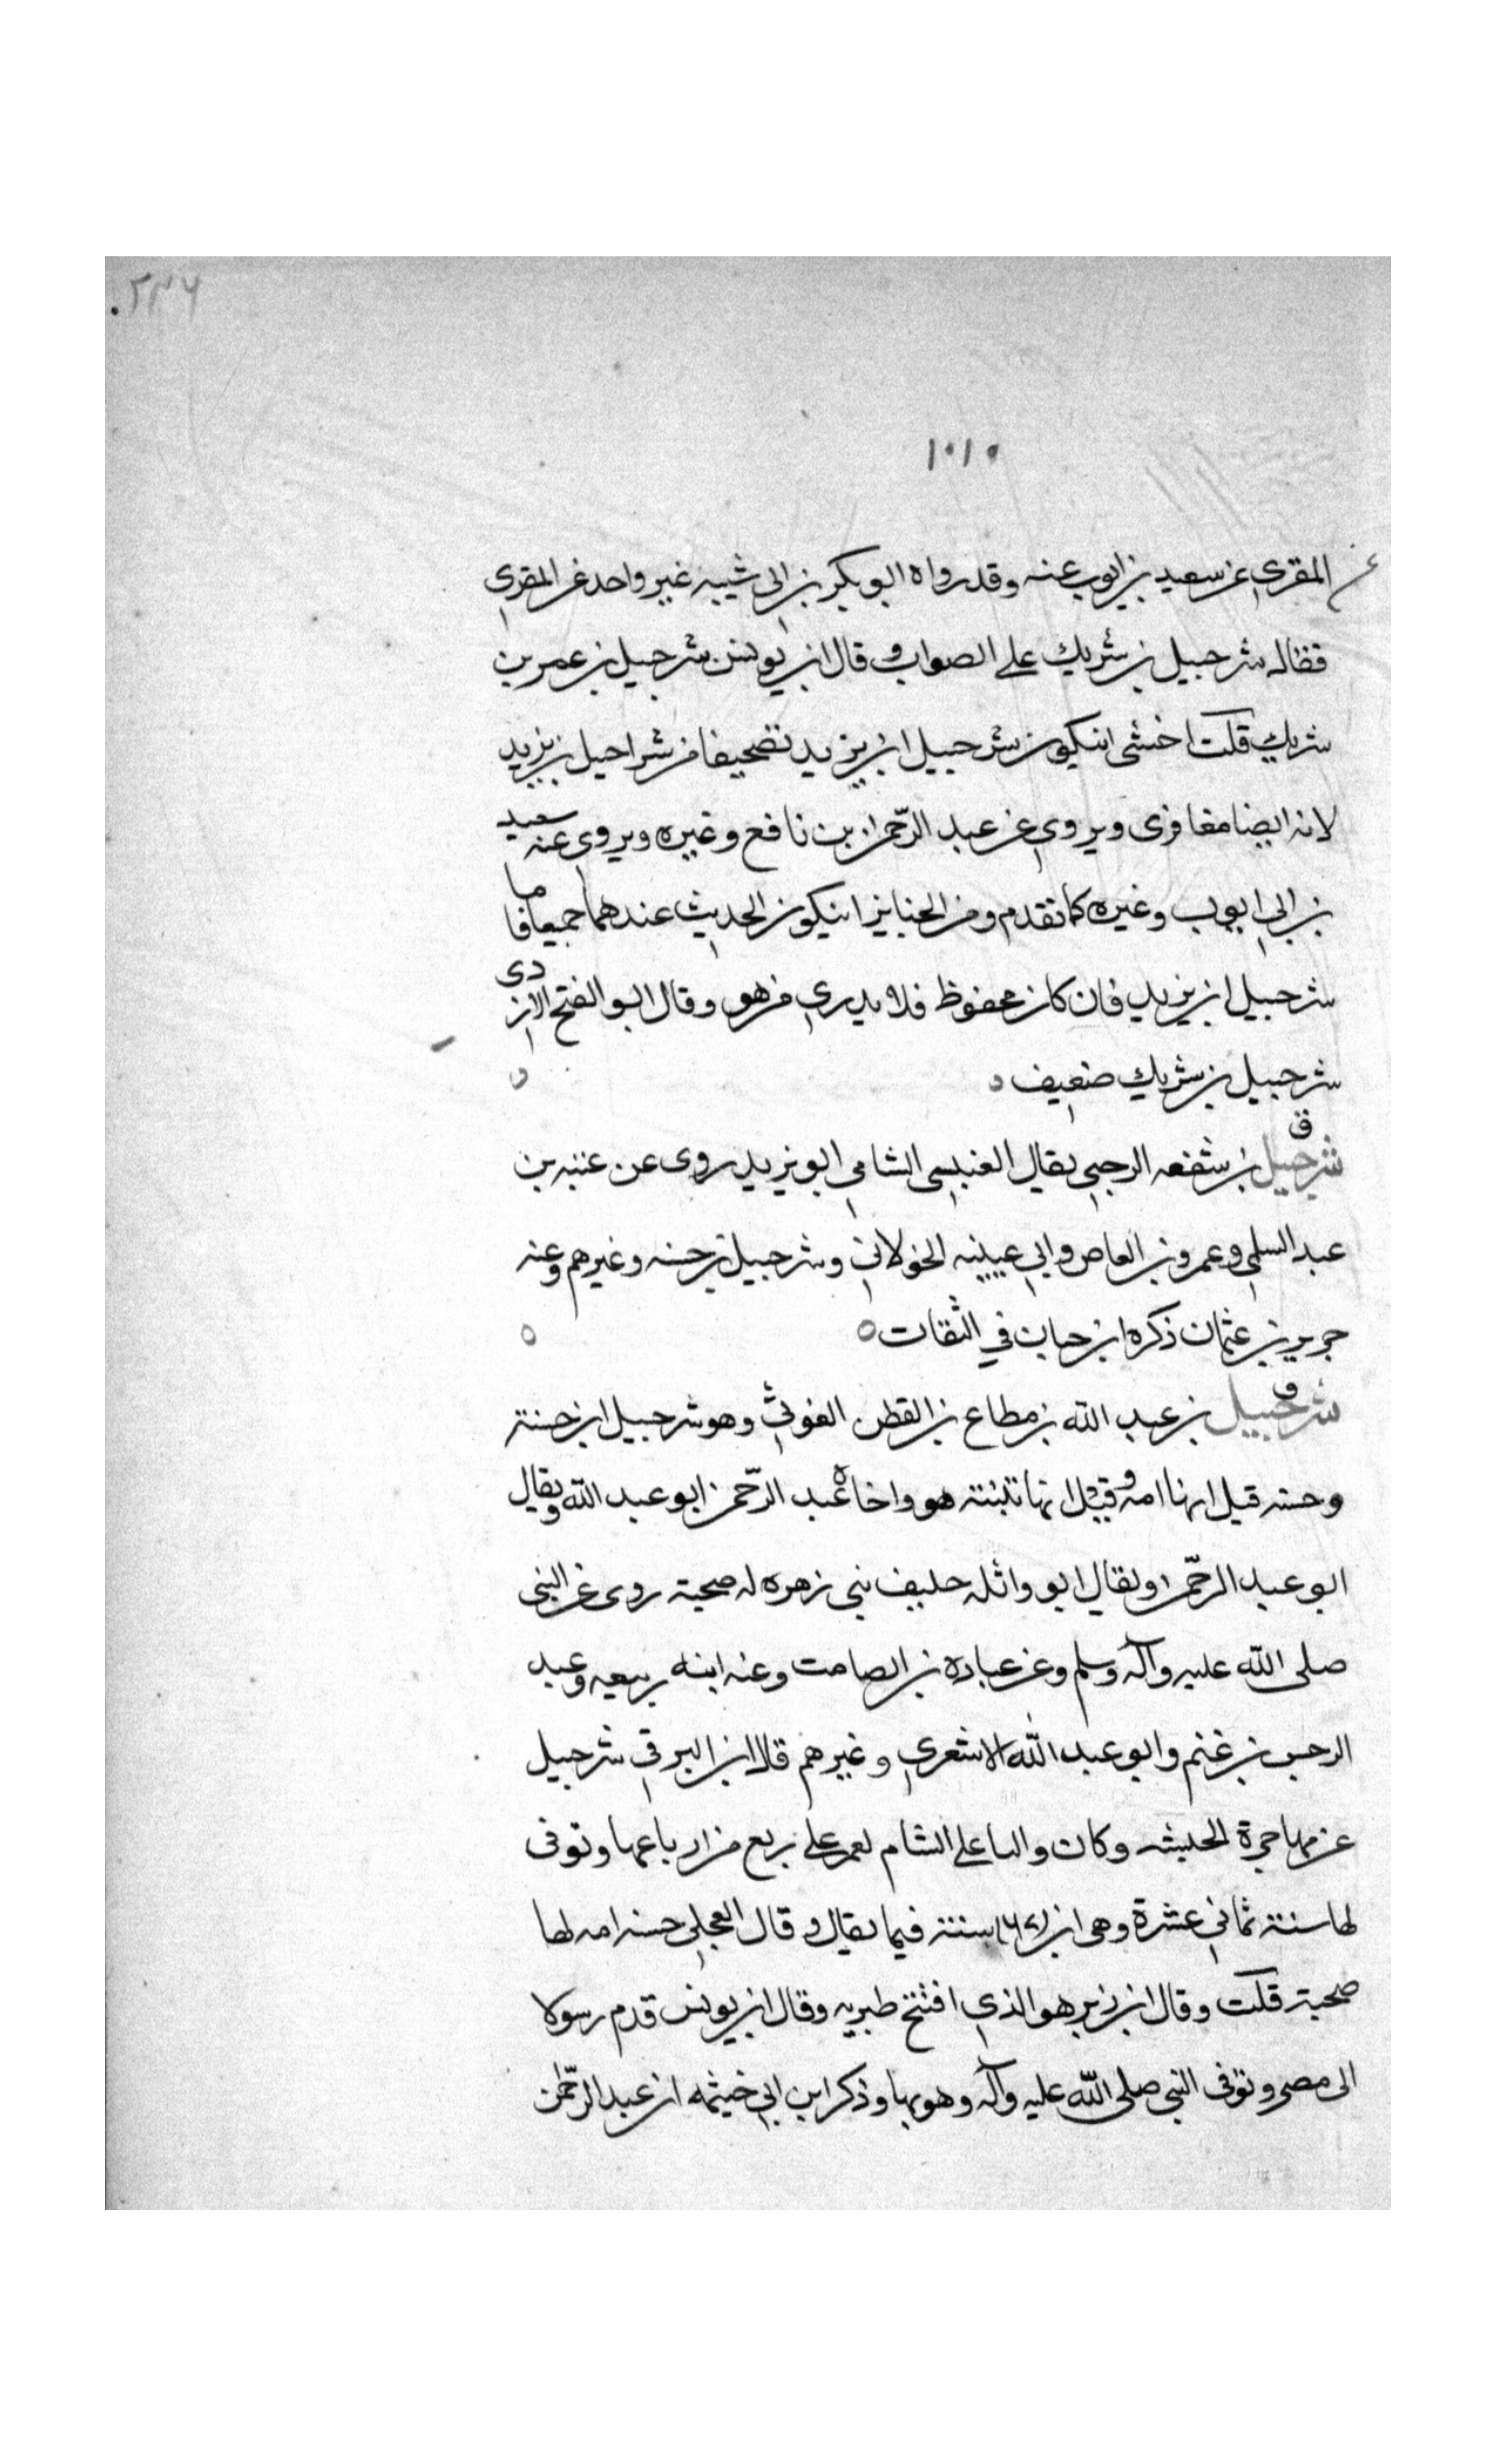 ٢٣٦
١٠١٠
عن المقري عن سعيد بن ايوب عنه وقد رواه ابو بكر بن ابي شيبه غير واحد عن المقري
فقال شرحبيل بن شريك على الصواب وقال ابن يونس شرحبيل بن عمر بن
شريك قلت اخشى ان يكون شرحبيل ابن يزيد تصحيفا من شراحيل بن يزيد
لانه ايضا معافري ويروي عن عبد الرحمن بن نافع وغيره ويروي عنه سعيد
بن ابي ايوب وغيره كما تقدم ومن الجايز ان يكون الحديث عندهما جميعا فاما
شرحبيل ابن يزيد فان كان محفوظ فلا يدري من هو وقال ابو الفتح الازدى
شرحبيل بن شريك ضعيف
ق
شرحبيل بن شفعه الرحبي يقال العنسى الشامي ابو يزيد روى عن عتبه بن
عبد السلمي وعمرو بن العاص وابي عيينه الخولاني وشرحبيل بن حسنه وغيرهم وعنه
جرير بن عثمان ذكره ابن حبان في الثقات
ق
شرحبيل بن عبد الله بن مطاع بن القطن الغوثي وهو شرحبيل ابن حسنة
وحسنه قيل انها امه وقيل انها تبنته هو واخاه عبد الرحمن ابو عبد الله ويقال
ابو عبد الرحمن ويقال ابو واثله حليف بني زهره له صحبة روى عن النبي
صلى الله عليه وآله وسلم وعن عباده بن الصامت وعنه ابنه ربيعه وعبد
الرحمن بن غنم وابو عبد الله الاشعري وغيرهم قال ابن البرقي شرحبيل
من مهاجرة الحبشه وكان واليا على الشام لعمر على ربع من ارباعها وتوفى
لها سنة ثماني عشرة وهى ابن ٦٧ سنة فيما يقال وقال العجلي حسنه امه لها
صحبة قلت وقال ابن زبر هو الذي افتتح طبريه وقال ابن يونس قدم رسولا
الى مصر وتوفى النبى صلى الله عليه وآله وهو بها وذكر ابن ابي خيثمه ان عبد الرحمن